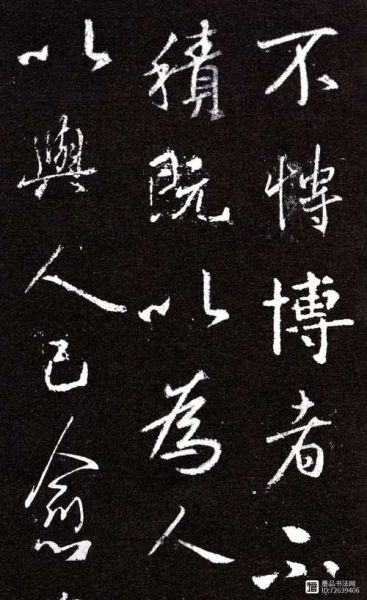 不愽博者不
積既以為人
以與人已愈
墨品书法网
ID:72639406